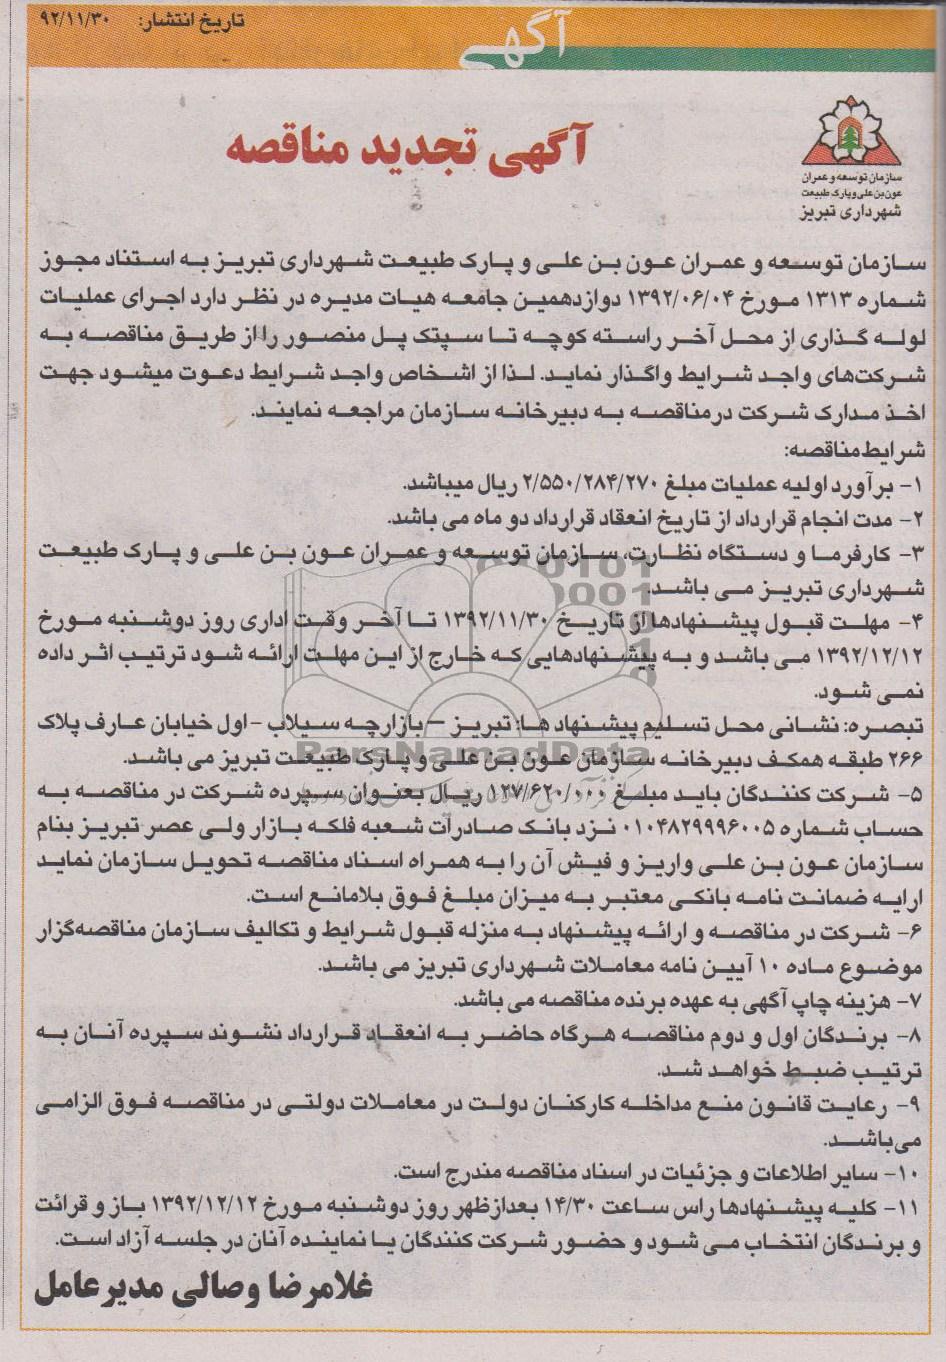 تاریخ انتشار: ۹۲/۱۱/۳۰
آگهی
سازمان توسعه و عمران
عون بن علی و پارک طبیعت
شهرداری تبریز
آگهی تجدید مناقصه
سازمان توسعه و عمران عون بن علی و پارک طبیعت شهرداری تبریز به استناد مجوز
شماره ۱۳۱۳ مورخ ۱۳۹۲/۰۶/۰۴ دوازدهمین جامعه هیات مدیره در نظر دارد اجرای عملیات
لوله گذاری از محل آخر راسته کوچه تا سپتک پل منصور را از طریق مناقصه به
شرکت‌های واجد شرایط واگذار نماید. لذا از اشخاص واجد شرایط دعوت میشود جهت
اخذ مدارک شرکت درمناقصه به دبیرخانه سازمان مراجعه نمایند.
شرایط مناقصه:
۱- برآورد اولیه عملیات مبلغ ۲/۵۵۰/۲۸۴/۲۷۰ ریال میباشد.
۲- مدت انجام قرارداد از تاریخ انعقاد قرارداد دو ماه می باشد.
۳- کارفرما و دستگاه نظارت، سازمان توسعه و عمران عون بن علی و پارک طبیعت
شهرداری تبریز می باشد.
۴- مهلت قبول پیشنهادها از تاریخ ۱۳۹۲/۱۱/۳۰ تا آخر وقت اداری روز دوشنبه مورخ
۱۳۹۲/۱۲/۱۲ می باشد و به پیشنهادهایی که خارج از این مهلت ارائه شود ترتیب اثر داده
نمی شود.
تبصره: نشانی محل تسلیم پیشنهاد ها: تبریز – بازارچه سیلاب - اول خیابان عارف پلاک
۲۶۶ طبقه همکف دبیرخانه سازمان عون بن علی و پارک طبیعت تبریز می باشد.
ParsNamadData
۵- شرکت کنندگان باید مبلغ ۱۲۷/۶۲۰/۰۰۰ ریال بعنوان سپرده شرکت در مناقصه به
حساب شماره ۰۱۰۴۸۲۹۹۹۶۰۰۵ نزد بانک صادرات شعبه فلکه بازار ولی عصر تبریز بنام
سازمان عون بن علی واریز و فیش آن را به همراه اسناد مناقصه تحویل سازمان نماید
ارایه ضمانت نامه بانکی معتبر به میزان مبلغ فوق بلامانع است.
۶- شرکت در مناقصه و ارائه پیشنهاد به منزله قبول شرایط و تکالیف سازمان مناقصه‌گزار
موضوع ماده ۱۰ آیین نامه معاملات شهرداری تبریز می باشد.
۷- هزینه چاپ آگهی به عهده برنده مناقصه می باشد.
۸- برندگان اول و دوم مناقصه هرگاه حاضر به انعقاد قرارداد نشوند سپرده آنان به
ترتیب ضبط خواهد شد.
۹- رعایت قانون منع مداخله کارکنان دولت در معاملات دولتی در مناقصه فوق الزامی
می‌باشد.
۱۰- سایر اطلاعات و جزئیات در اسناد مناقصه مندرج است.
۱۱- کلیه پیشنهادها راس ساعت ۱۴/۳۰ بعدازظهر روز دوشنبه مورخ ۱۳۹۲/۱۲/۱۲ باز و قرائت
و برندگان انتخاب می شود و حضور شرکت کنندگان یا نماینده آنان در جلسه آزاد است.
غلامرضا وصالی مدیرعامل